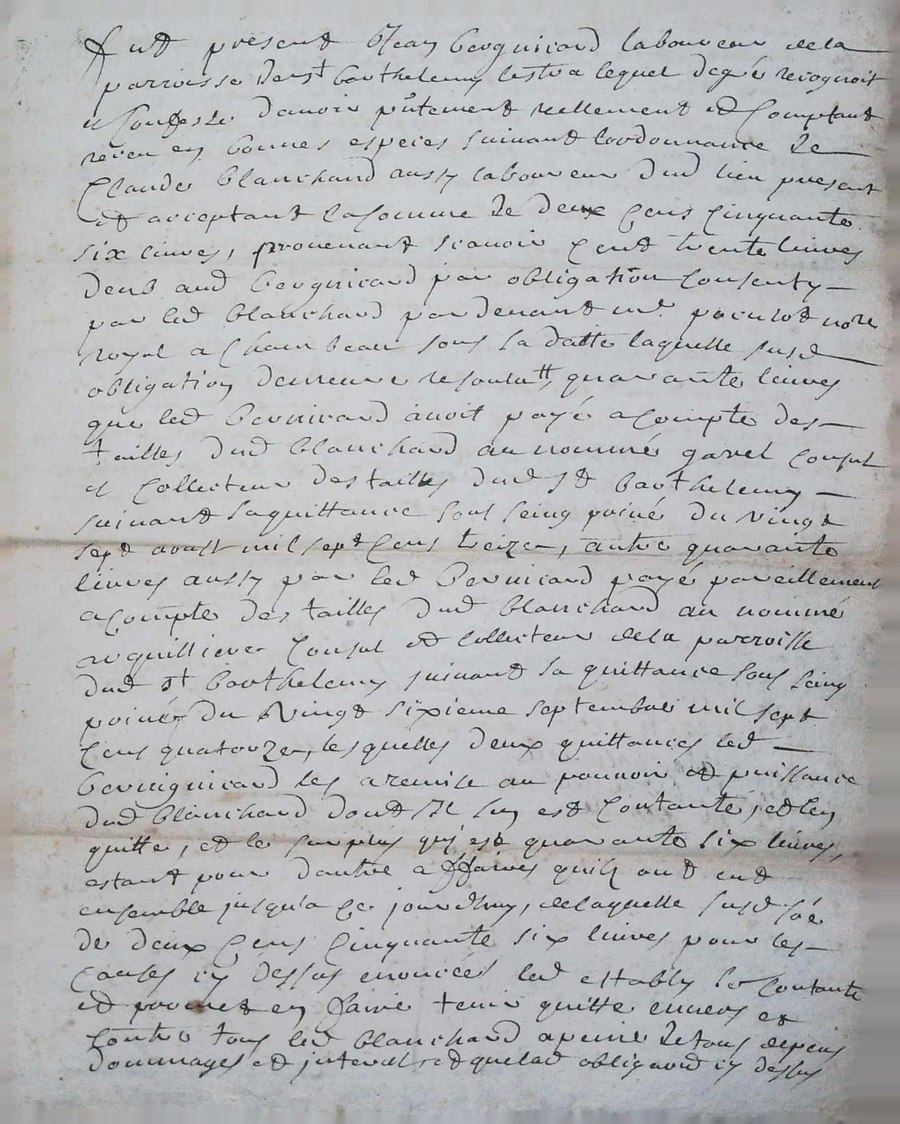 fut present Jean bergnicard laboureur dela
parroisse de st barthelemy lestra lequel de gré recognoit
et Confesse davoir pntement reellement et Comptant
receu en bonnes especes suivant lordonnance de
Claude blanchard aussy laboureur dud lieu present
et acceptant la somme de deux Cens Cinquante
six livres, provenant scavoir Cent trente livres
deub aud bergnicard par obligation Consenty
par led blanchard pardevant me notre
royal a Chambeau sous sa datte laquelle susd
obligation demeure resolutt, quarante livres
que led bernicard avoit payé a Compte des
tailles dud blanchard au nommé garel Consul
et Collecteur des tailles dud st barthelemy
suivant sa quittance sous seing privé du vingt
sept aoust mil sept Cens treize, autre quarante
livres aussy par led bernicard payé pareillement
a Compte des tailles dud blanchard au nommé
arquilliere Consul et Collecteur dela parroisse
dud st barthelemy suivant sa quittance sous seing
privée du vingt sixieme septembre mil sept
Cens quatorze, lesquelles deux quittances led
bernignicard les a remise au pouvoir et puissance
dud blanchard dont il sen est Contanté, et len
quitte, et le surplus qui est quarante six livres,
estant pour dautre affaires quilz ont eut
ensemble jusqua Ce jourdhuy, de laquelle susd soe
de deux Cens Cinquante six livres pour les
Causes cy dessus enoncées led estably se Contante
et promet en faire tenir quitte envers et
Contre tous led blanchard a peine de tous depens
dommages et interest et que lad obligaon cy dessus